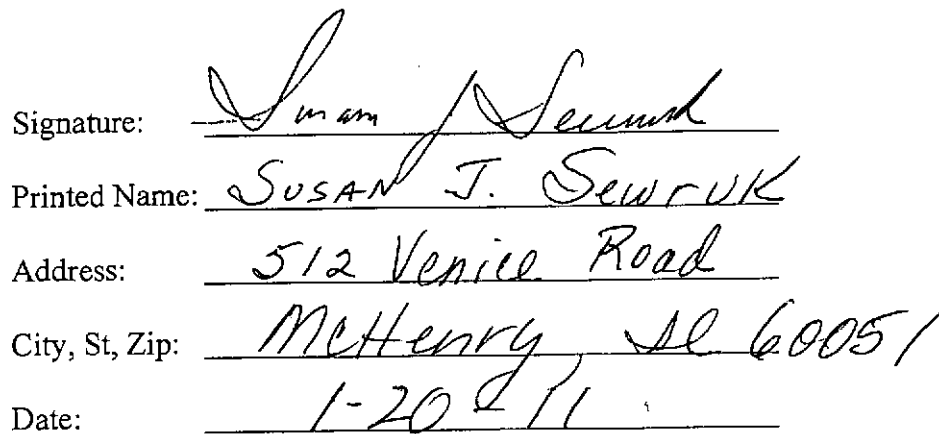 Signature: Susan J Sewruk
Printed Name: SUSAN J. SewruK
Address: 512 Venice Road
City, St, Zip: McHenry, Il 60051
Date: 1-20-11